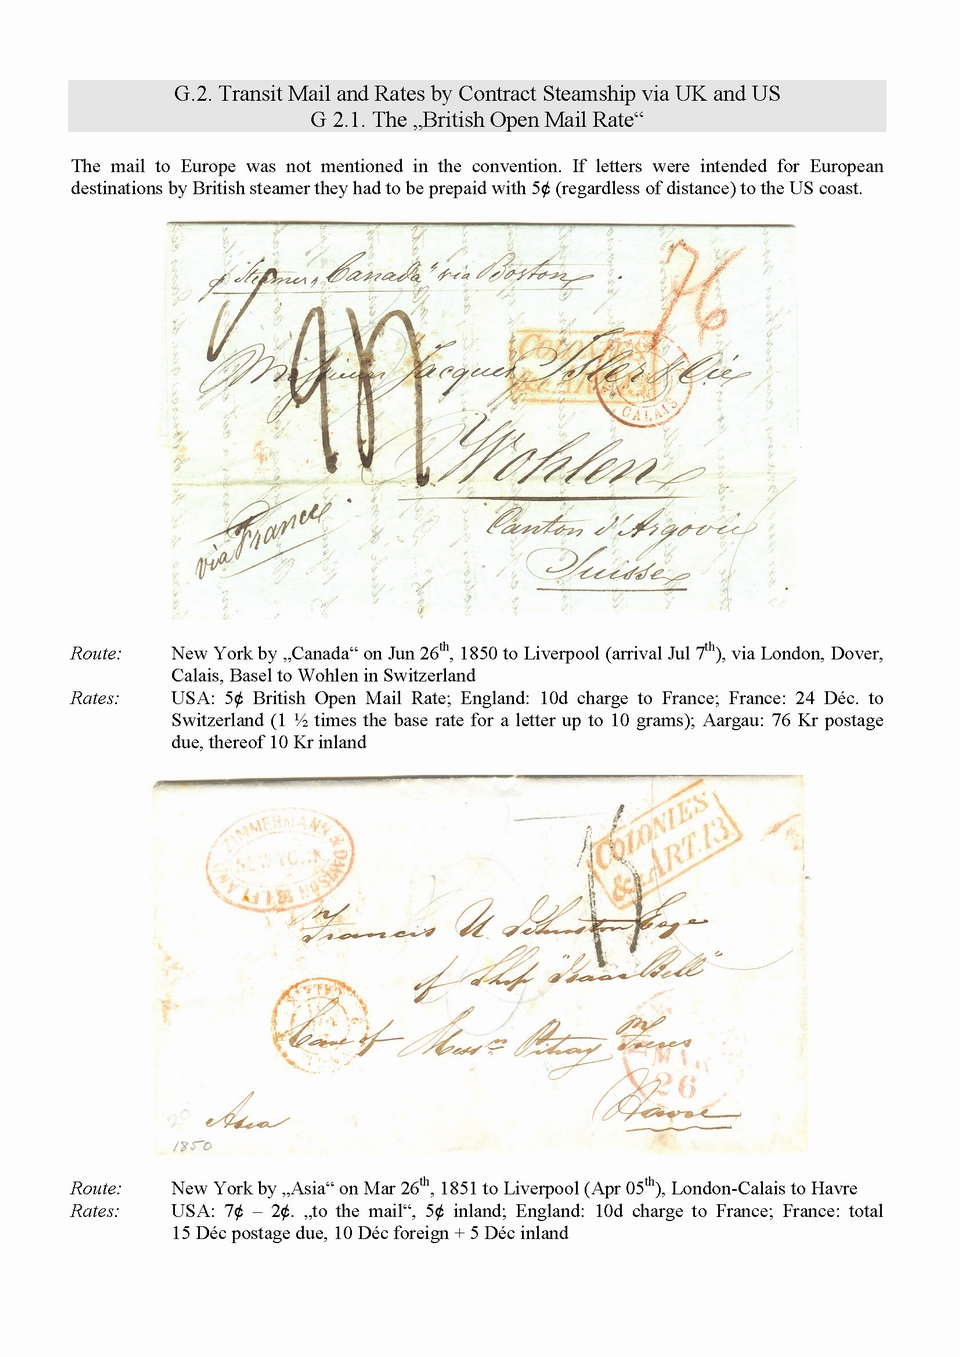 G.2. Transit Mail and Rates by Contract Steamship via UK and US
G 2.1. The „British Open Mail Rate“
The mail to Europe was not mentioned in the convention. If letters were intended for European
destinations by British steamer they had to be prepaid with 5¢ (regardless of distance) to the US coast.
p Steamer „Canada“ via Boston
76
COLONIES
&c. ART.
Messieurs Jacques Isler & Cie
CALAIS
Wohlen
via France
Canton d'Argovie
Suisse
Route: New York by „Canada“ on Jun 26th, 1850 to Liverpool (arrival Jul 7th), via London, Dover,
Calais, Basel to Wohlen in Switzerland
Rates: USA: 5¢ British Open Mail Rate; England: 10d charge to France; France: 24 Déc. to
Switzerland (1 ½ times the base rate for a letter up to 10 grams); Aargau: 76 Kr postage
due, thereof 10 Kr inland
ZIMMERMANN &
NEW YORK
15
COLONIES
&c. ART. 13
Francis U Johnston Esqe
of Ship "Isaac Bell"
Care of Messrs Pitray Freres
MAR
26
Havre
Asia
1850
Route: New York by „Asia“ on Mar 26th, 1851 to Liverpool (Apr 05th), London-Calais to Havre
Rates: USA: 7¢ – 2¢. „to the mail“, 5¢ inland; England: 10d charge to France; France: total
15 Déc postage due, 10 Déc foreign + 5 Déc inland